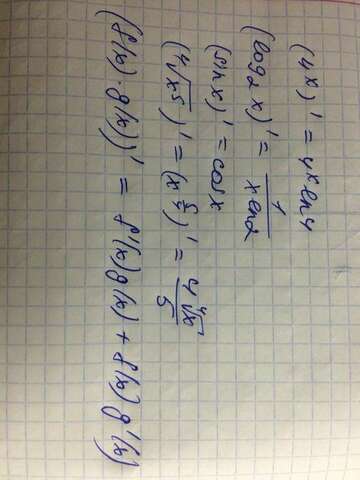 (4ˣ)' = 4ˣ ln 4
(log₂ x)' = 1/(x ln 2)
(sin x)' = cos x
(⁴√x⁵)' = (x^(5/4))' = 4 ⁴√x / 5
(f(x) · g(x))' = f'(x)g(x) + f(x)g'(x)